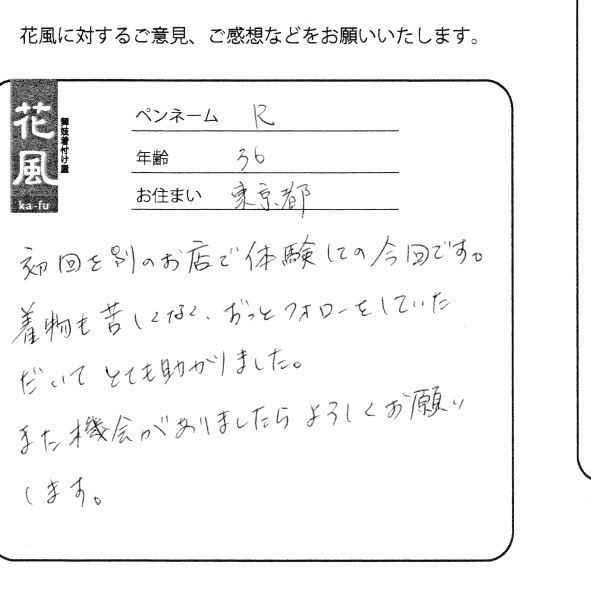 花風に対するご意見、ご感想などをお願いいたします。
花風
舞妓着付け屋
ka-fu
ペンネーム R
年齢 36
お住まい 東京都
初回を別のお店で体験しての今回です。
着物も苦しくなく、ずっとフォローをしていた
だいてとても助かりました。
また機会がありましたらよろしくお願い
します。